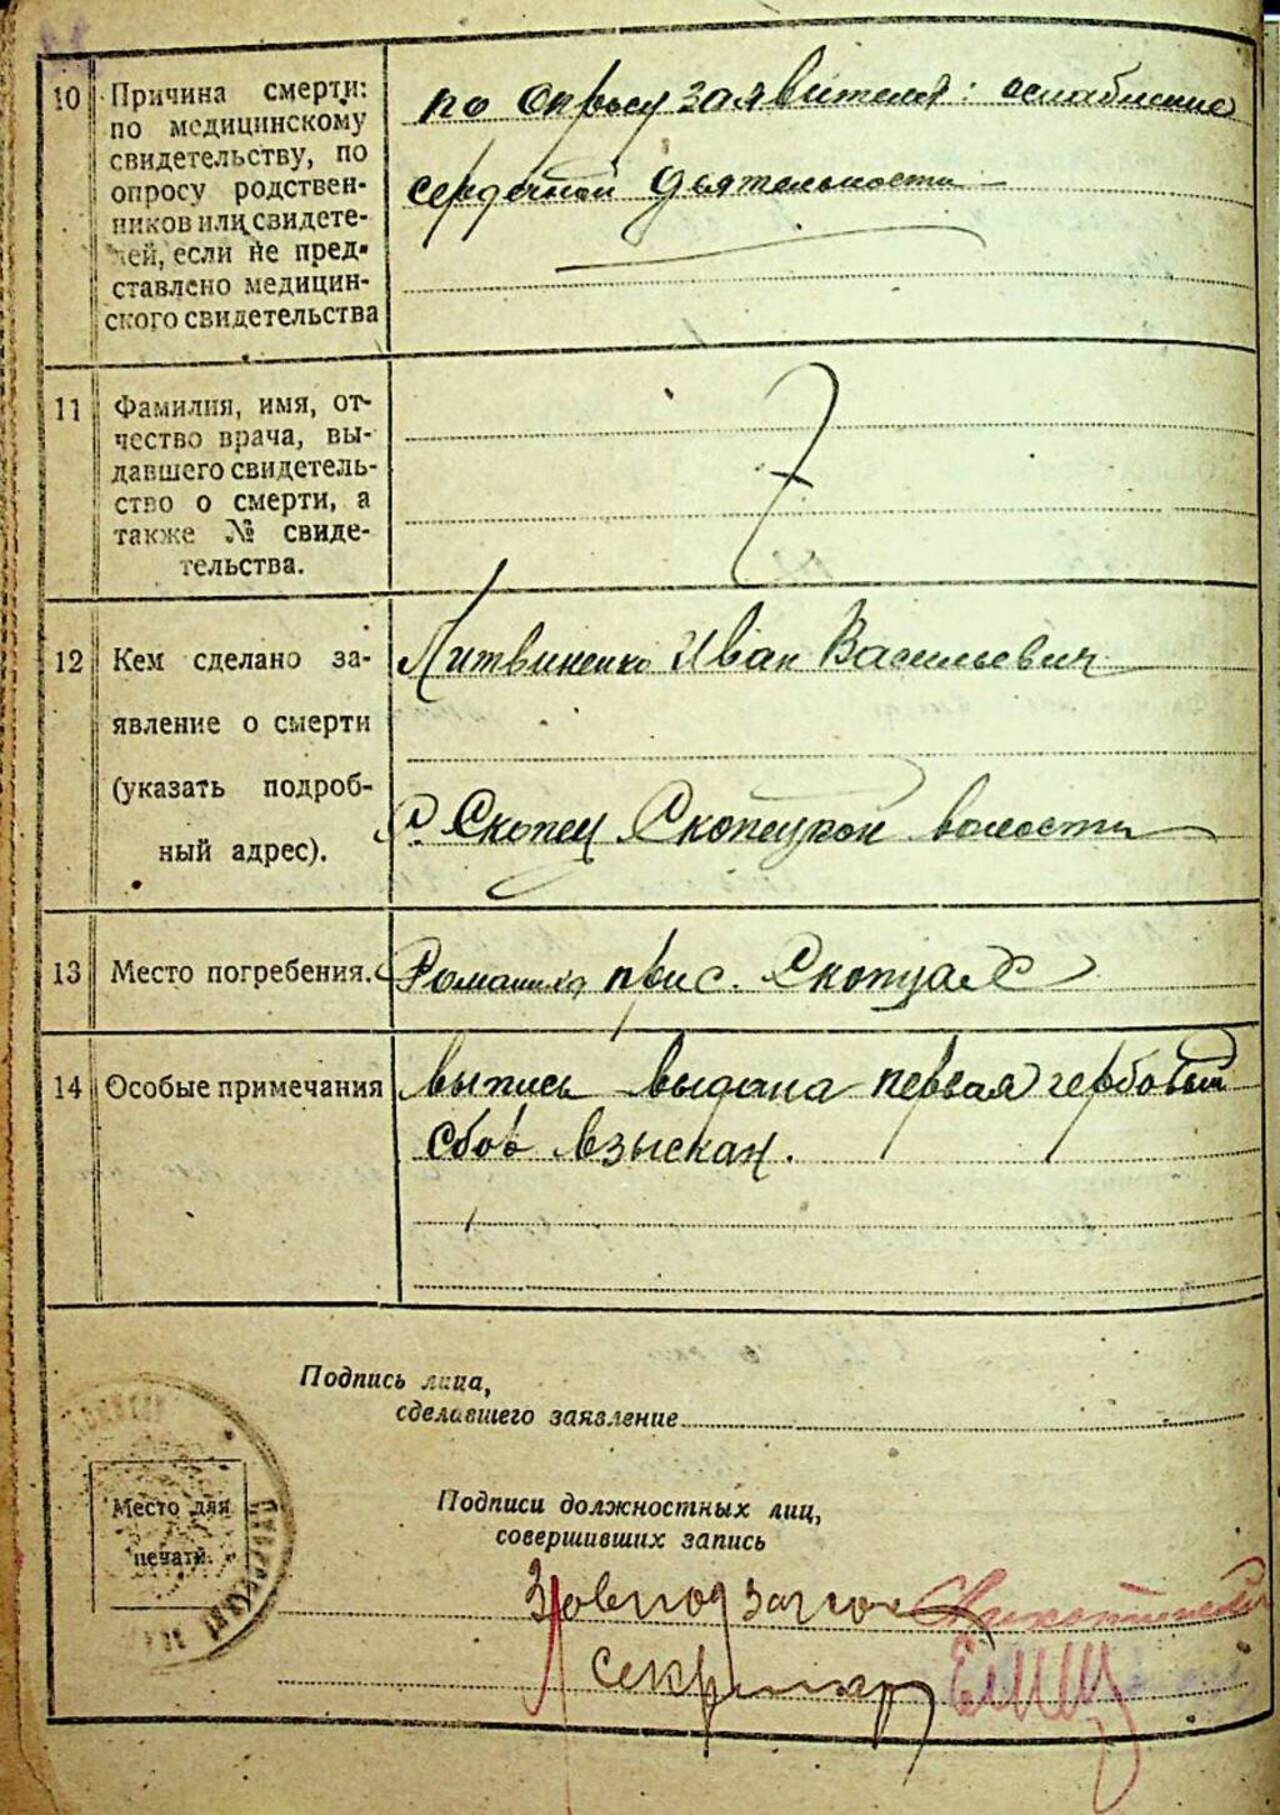 10 Причина смерти: по медицинскому свидетельству, по опросу родствен-
ников или свидете-
лей, если не пред-
ставлено медицин-
ского свидетельства
по опросу заявителя: ослабление
сердечной деятельности
11 Фамилия, имя, от-
чество врача, вы-
давшего свидетель-
ство о смерти, а
также № свиде-
тельства.
12 Кем сделано за-
явление о смерти
(указать подроб-
ный адрес).
Литвиненко Иван Васильевич
с. Скопец Скопецкой волости
13 Место погребения.
при с. Скопцах
14 Особые примечания
выпись выдана первая гербовый
сбор взыскан.
Подпись лица,
сделавшего заявление
Место для
печати.
Подписи должностных лиц,
совершивших запись
Секретарь